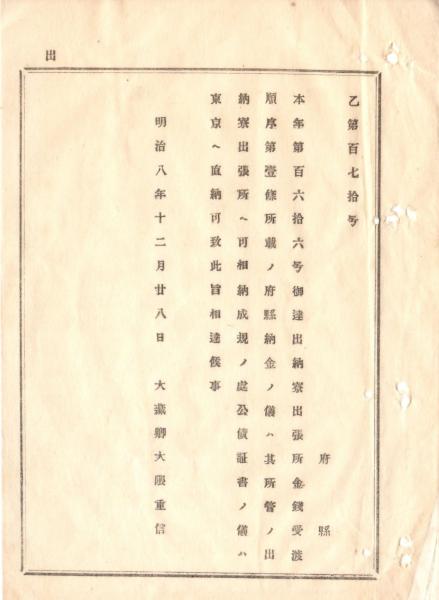 出
乙第百七拾号
府縣
本年第百六拾六号御達出納寮出張所金錢受渡
順序第壹條所載ノ府縣納金ノ儀ハ其所管ノ出
納寮出張所ヘ可相納成規ノ處公債証書ノ儀ハ
東京ヘ直納可致此旨相達候事
明治八年十二月廿八日 大藏卿大隈重信